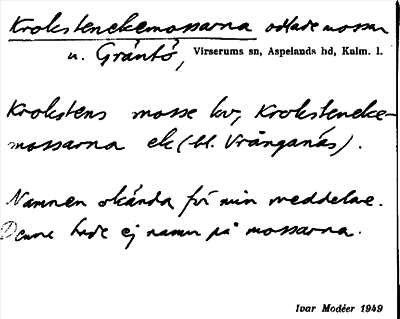 Krokstenekemossarna odlade mossar
u. Gräntö, Virserums sn, Aspelands hd, Kalm. l.
Krokstens mosse kv, Kroksteneke-
mossarna ek (bl. Vrånganäs).
Namnen okända för min meddelare.
Denne hade ej namn på mossarna.
Ivar Modéer 1949